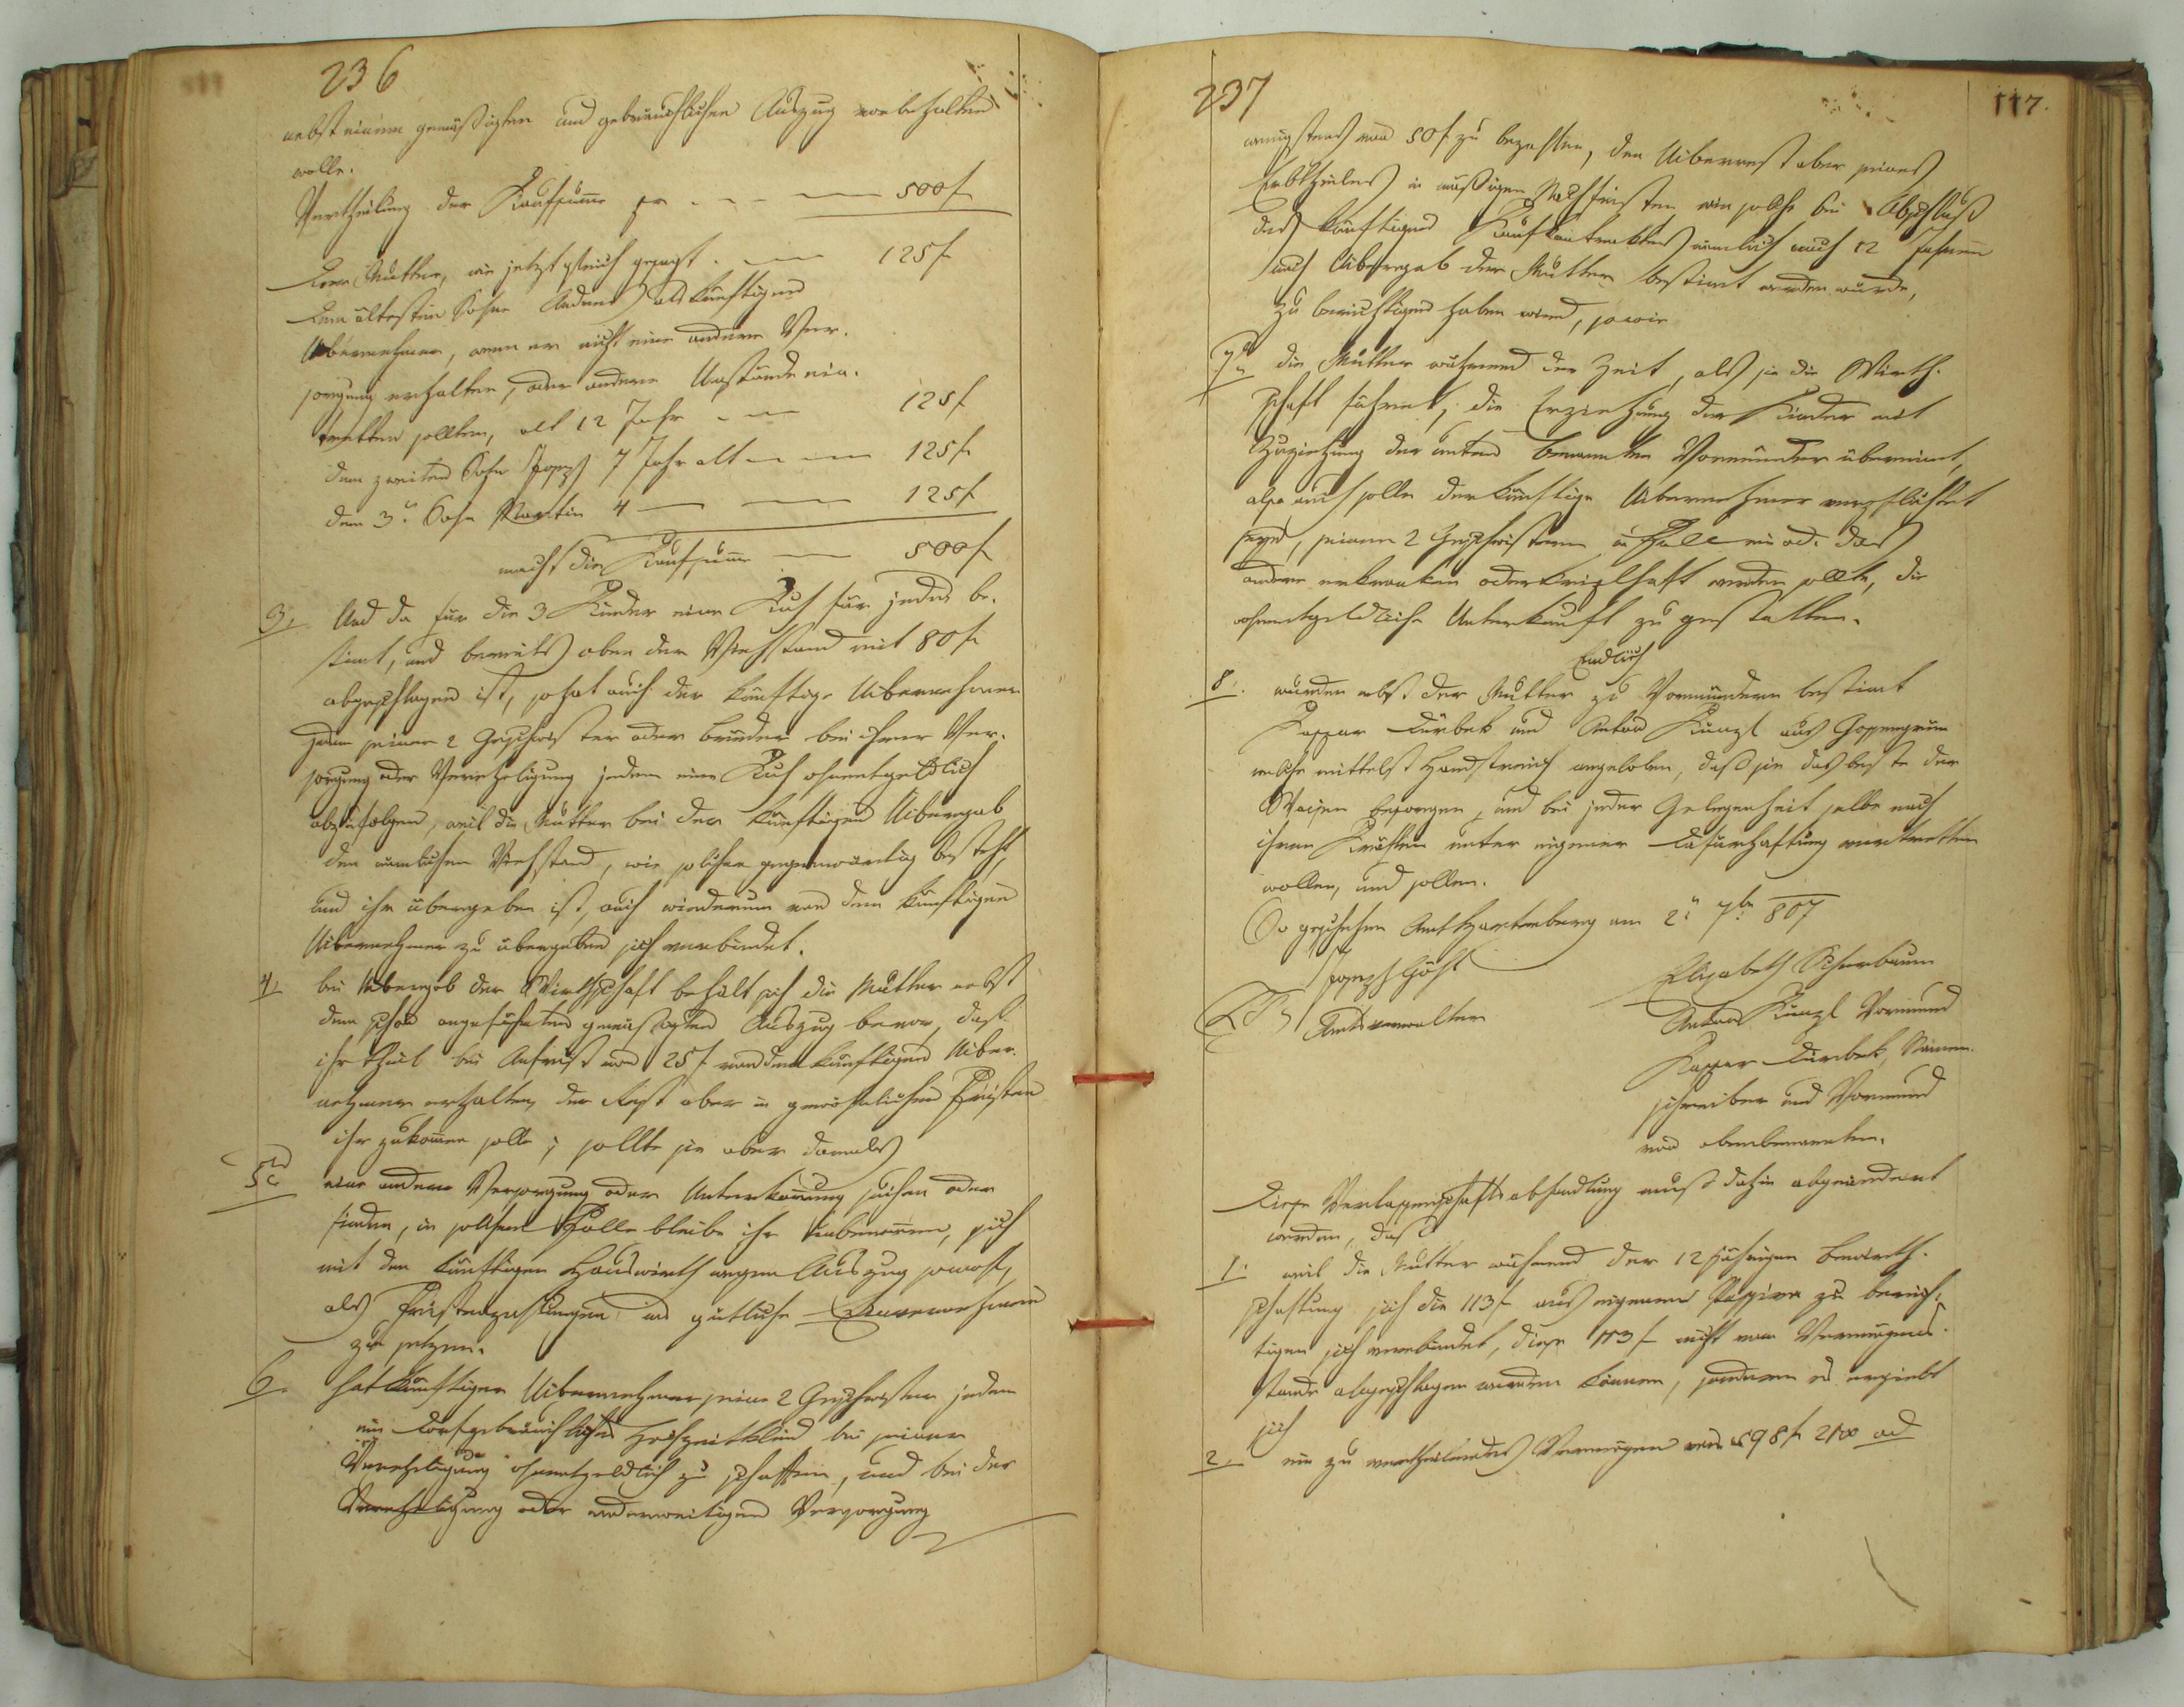 236
nebst einem gemäßigten und gebräuchlichen Auszug vorbehalten
wolle.
Vertheilung der Kaufsume pr - - - 500 f
Der Mutter, wie jetzt gleich gesagt. — 125 f
Dem ältesten Sohne Andreas als künftigen
Uibernehmer, wenn er nicht eine andere Ver-
sorgung erhalten, oder andere Umstände ein-
tretten sollten, alt 12 Jahr - — 125 f
dem zweiten Sohn Joseph 7 Jahr alt — — 125 f
dem 3n Sohn Martin 4 — — 125 f
macht die Kaufsume — 500 f
3, Und da für die 3 Kinder eine Kuh für jedes be-
stimt, und bereits oben der Viehstand mit 80 f
abgeschlagen ist, so hat auch der künftige Uibernehmer
jedem seiner 2 Geschwister oder Brüder bei ihrer Ver-
sorgung oder Verehelichung jedem eine Kuh ohnentgeldlich
abzufolgen, weil die Mutter bei der künftigen Uibergab
den nemlichen Viehstand, wie solcher gegenwärtig besteht,
und ihr übergeben ist, auch wiederum an den künftigen
Uibernehmer zu übergeben sich verbindet.
4, bei Uibergab der Wirthschaft behält sich die Mutter nebst
dem schon angeführten gemäßigten Auszug bevor, daß
ihr Theil bei Anfrist von 25 f von dem künftigen Uiber-
nehmer erhalten, der Rest aber in gewöhnlichen Fristen
ihr zukommen solle; sollte sie aber damals
5te eine andere Versorgung oder Unterkommung suchen oder
finden, in solchem Falle bleibe ihr unbenommen, sich
mit den künftigen Hauswirth wegen Auszug sowohl,
als Fristenzahlungen ins gütliche Einvernehmen
zu setzen.
6. hat künftiger Uibernehmer seine 2 Geschwister jeden
ein dorfgebräuchliches Hochzeitkleid bei seiner
Verehelichung ohnentgeldlich zu schaffen, und bei der
Verehelichung oder anderweitigen Versorgung
237
117.
wenigstens von 50 f zu bezahlen, den Uiberrest aber seines
Erbtheiles in mäßigen Nachfristen wie solche bei Abschluß
des künftigen Kaufkontraktes nemlich nach 12 Jahren
nach Uibergab der Mutter bestimt werden würde,
zu berichtigen haben wird, so wie
7n die Mutter während der Zeit, als sie die Wirth-
schaft führet, die Erziehung der Kinder mit
Zuziehung der unten benannten Vormünder übernimt,
also auch solle der künftige Uibernehmer verpflichtet
seyn, seinen 2 Geschwistern in Falle ein od. das
andere erkranken oder bresthaft werden sollte, die
ohnentgeldliche Unterkunft zu gestatten.
Endlich
8. wurden nebst der Mutter zu Vormündern bestimt
Kaspar Dürbek und Anton Künzl aus Gossengrün
welche mittelst Handstreich angeloben, daß sie das beste der
Waisen besorgen, und bei jeder Gelegenheit selbe nach
ihren Kräften unter eigener Dafürhaftung vertretten
wollen, und sollen.
So geschehen Amt Hartenberg am 2n 7br 807
Joseph Göhl
Amtsverwalter
Elisabeth Scherbaum
Anton Künzl Vormund
Kaspar Dürbek, Namen-
schreiber und Vormund
von obenbenannten.
Diese Verlassenschaftsabhandlung muß dahin abgeändert
werden, daß
1. weil die Mutter während der 12 jährigen Bewirth-
schaftung sich die 113 f aus eigenem Passiva zu berich-
tigen sich verbindet, diese 113 f nicht vom Vermögens-
stande abgeschlagen werden können, sondern es ergiebt
sich
2. ein zu vertheilendes Vermögen von 598 f 21 x ad